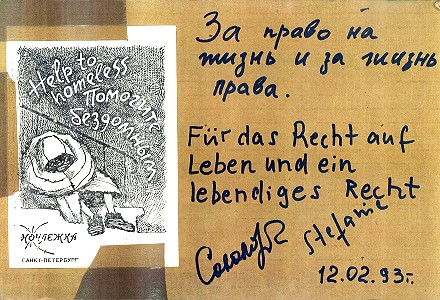 Help to
homeless
Помогите
бездомным
НОЧЛЕЖКА
САНКТ-ПЕТЕРБУРГ
За право на
жизнь и за жизнь
права.
Für das Recht auf
Leben und ein
lebendiges Recht
Stefanie
12.02.93г.